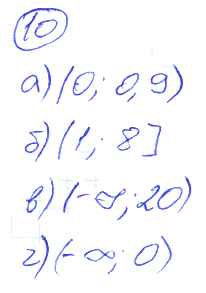 10
а) (0; 0,9)
б) (1; 8]
в) (-∞; 20)
г) (-∞; 0)